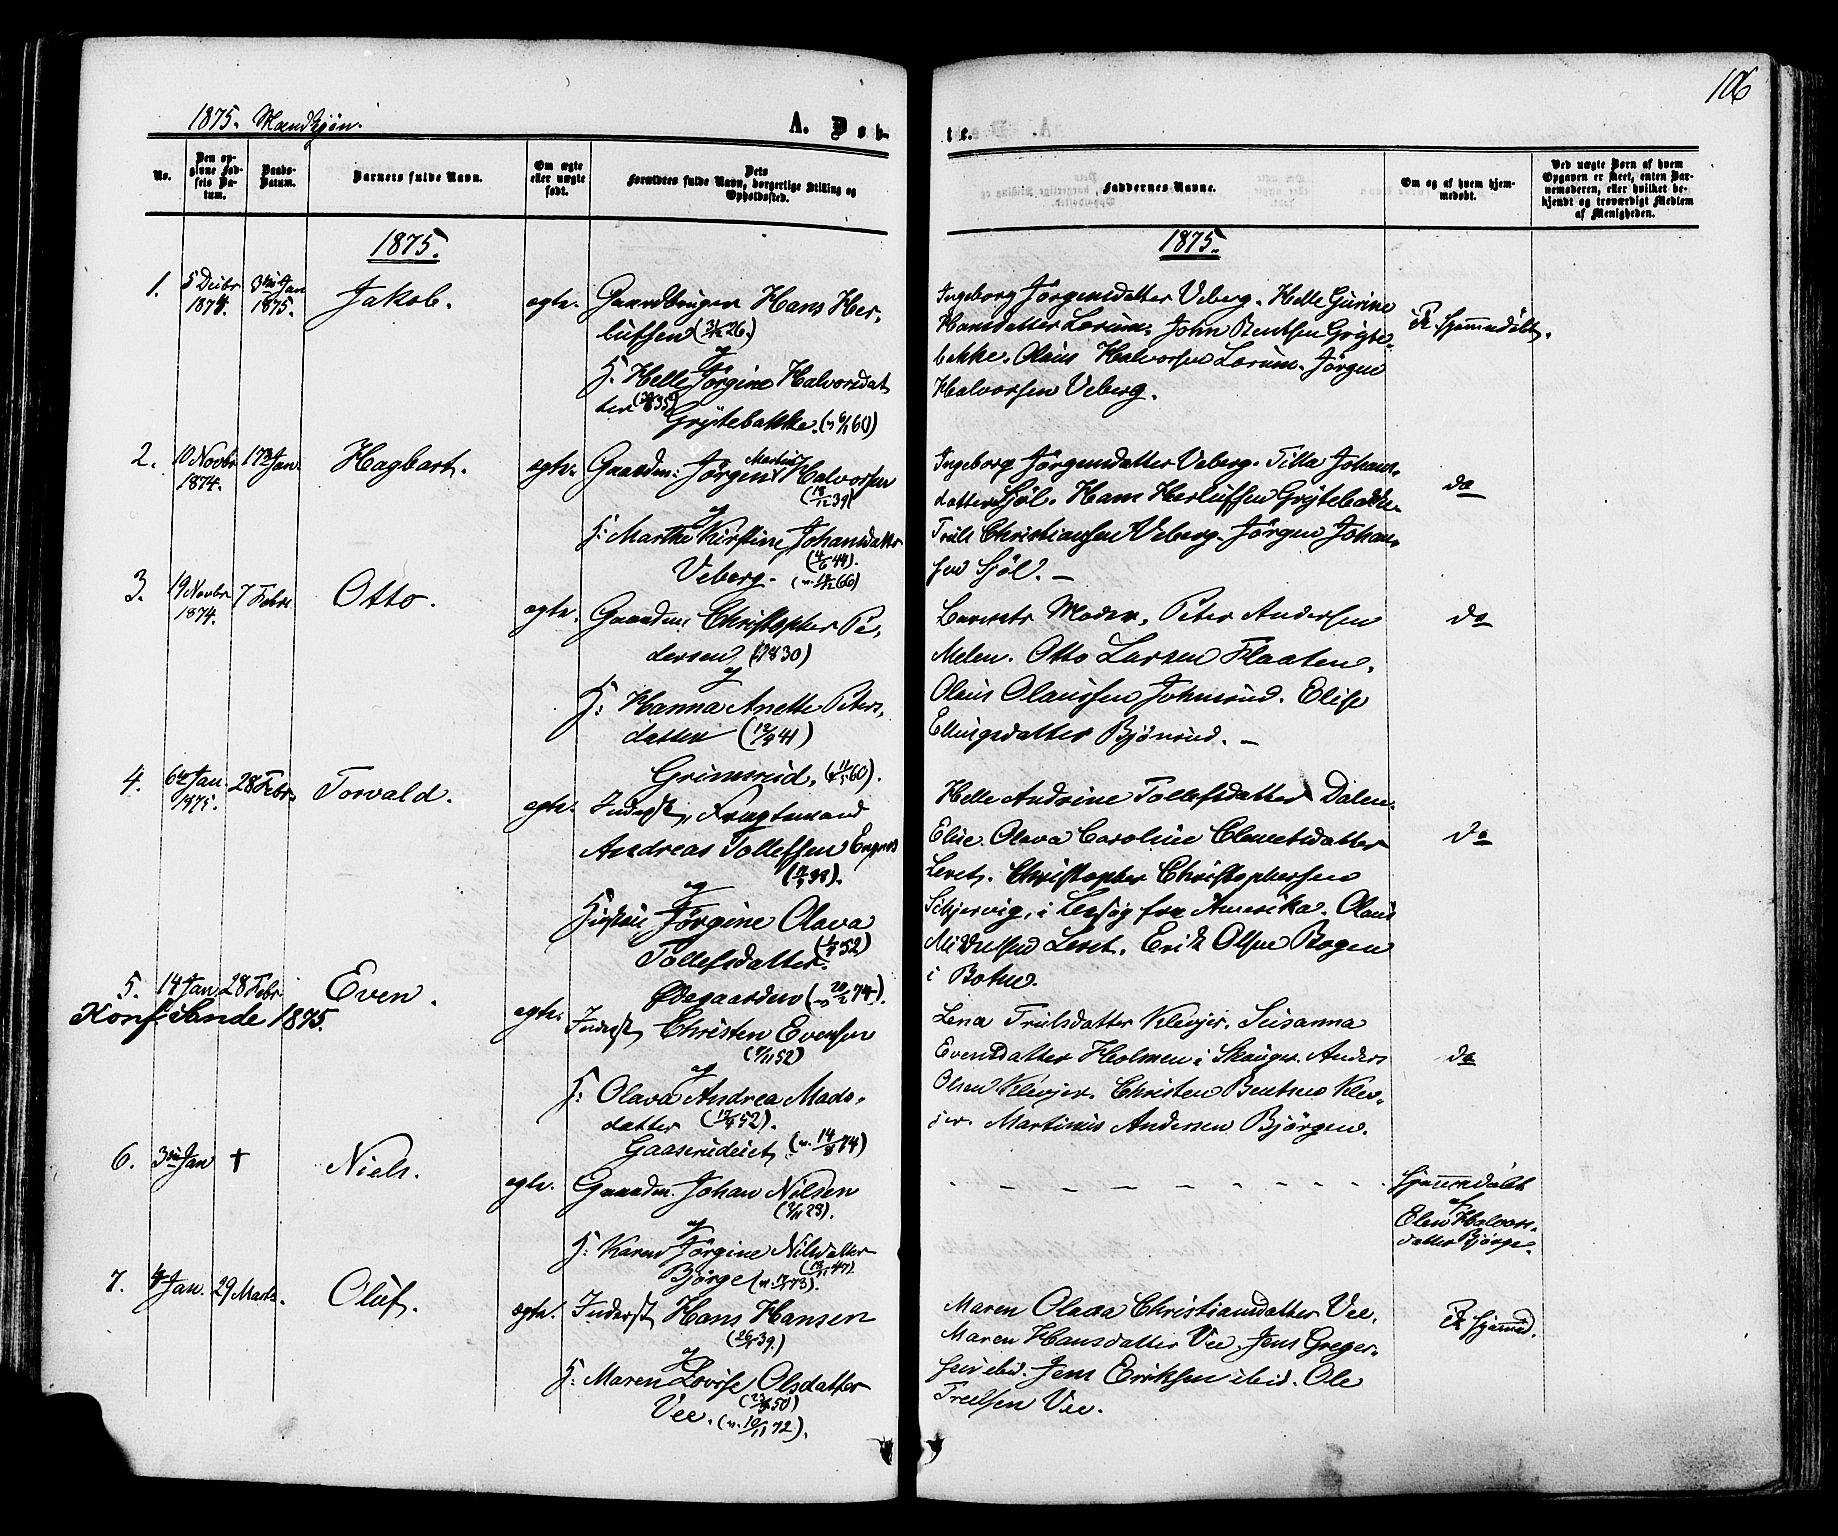 106
1875. Mandkjön.
A. Døb-
te.
No.
Den op-
givne Fød-
sels Da-
tum.
Daabs-
Datum.
Barnets fulde Navn.
Om ægte
eller uægte
født.
Dets
Forældres fulde Navn, borgerlige Stilling og
Opholdssted.
Faddernes Navne.
Om og af hvem hjem-
medøbt.
Ved uægte Børn af hvem
Opgaven er skeet, enten Bar-
nemoderen, eller hvilket be-
kjendt og troværdigt Medlem
af Menigheden.
1875.
1875.
1.
5 Decbr
1874.
3die Jan
1875.
Jakob.
egte.
Gaardbruger Hans Her-
lufsen
og
H. Helle Jörgine Halvorsdat
ter
Grÿtebakke.
Ingeborg Jörgensdatter Veberg. Helle Gurine
Hansdatter Lorum, John Bentsen Grÿte-
bakke. Olaus Halvorsen Lorum. Jörgen
Halvorsen Veberg.
Pr. hjemmedöbt.
2.
10 Novbr
1874.
17de Jan.
Hagbart.
egte.
Gaardm: Jörgen Martin Halvorsen
og
H: Marthe Kirstine Johansdatter
Veberg.
Ingeborg Jörgensdatter Veberg. Tilla Johans-
datter Sjöl. Hans Herlufsen Grÿtebakke
Truls Christiansen Veberg. Jörgen Johan-
sen Sjöl. —
do
3.
19 Novbr
1874.
7 Febr.
Otto.
egte.
Gaardm: Christopher Pe-
dersen
og
H: Hanna Anette Peters-
datter (12/9 41)
Grimsrud.
Barnets Moder, Peter Andersen
Melen. Otto Larsen Flaaten.
Olaus Olaussen Johnsrud. Elise
Ellingsdatter Bjönrud. —
do
4.
6te Jan.
1875.
28 Febr.
Torvald.
egte.
Inderst, Fragtemand
Andreas Tollefsen Engnes
og
Hustru Jörgine Olava
Tollefsdatter.
Ödegaarden (v. 20/2 74).
Helle Andrine Tollefsdatter Dalen.
Elise Olava Caroline Clemetsdatter
Leret. Christopher Christophersen
Skjervig, i Besög fra Amerika. Olaus
Leret. Erik Olsen Bogen
i Botne.
do
5.
14 Jan
28 Febr
Even.
Konf. i Sande 1875.
egte.
Inderst Christen Evensen
og
H: Olava Andrea Mads-
datter
Gaaserudeiet
Lena Trulsdatter Klevjer. Susanna
Evensdatter Holmen i Skouger. Anders
Olsen Klevjer. Christen Bentsen Klev-
jer. Martinus Andersen Björgen.
do
6.
3die Jan
†
Niels.
egte.
Gaardm. Johan Nilsen
og
H: Karen Jörgine Nilsdatter
Björge
- - - - - - - - - -
Hjemmedöbt
af
Elen Halvors-
datter Björge.
7.
Jan.
29 Marts.
Oluf.
egte.
Inderst Hans Hansen
(26/4 39.)
og
H: Maren Lovise Olsdatter
Vee. (v. 10/11 72).
Maren Olava Christiansdatter Vee.
Maren Hansdatter Vee. Jens Greger-
sen ibid. Jens Eriksen ibid. Ole
Truelsen Vee.
Pr hjemmed.